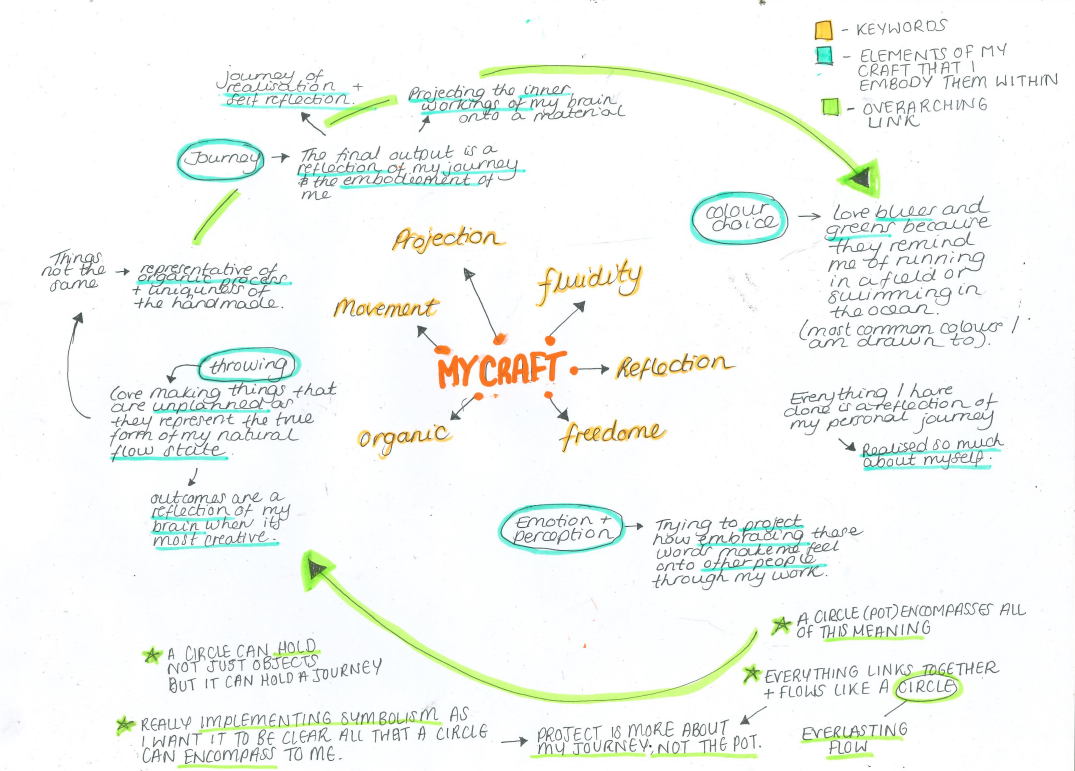 - KEYWORDS
- ELEMENTS OF MY
CRAFT THAT I
EMBODY THEM WITHIN
- OVERARCHING
LINK
journey of
realisation +
self reflection.
Projecting the inner
workings of my brain
onto a material
Journey
The final output is a
reflection of my journey
& the embodiement of
me
colour
choice
Love blues and
greens because
they remind
me of running
in a field or
swimming in
the ocean.
(most common colours I
am drawn to).
Things
not the
same
representative of
organic process
+ uniquness of
the handmade.
throwing
Love making things that
are unplanned as
they represent the true
form of my natural
flow state.
outcomes are a
reflection of my
brain when its
most creative.
Projection
fluidity
Movement
MY CRAFT
Reflection
Organic
freedome
Everything I have
done is a reflection of
my personal journey
Realised so much
about myself.
Emotion +
perception
Trying to project
how embracing these
words make me feel
onto other people
through my work.
A CIRCLE (POT) ENCOMPASSES ALL
OF THIS MEANING
EVERYTHING LINKS TOGETHER
+ FLOWS LIKE A CIRCLE
EVERLASTING
FLOW
PROJECT IS MORE ABOUT
MY JOURNEY; NOT THE POT.
A CIRCLE CAN HOLD
NOT JUST OBJECTS
BUT IT CAN HOLD A JOURNEY
REALLY IMPLEMENTING SYMBOLISM AS
I WANT IT TO BE CLEAR ALL THAT A CIRCLE
CAN ENCOMPASS TO ME.